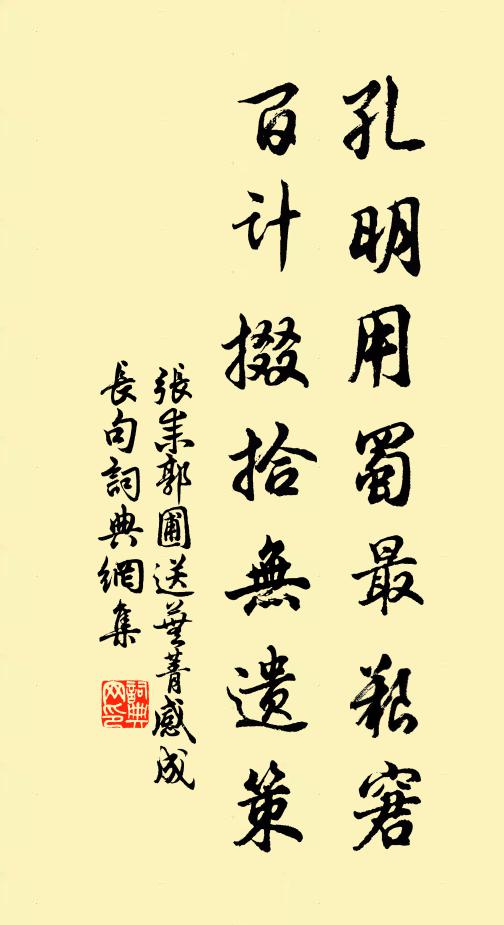 孔明用蜀最艱窘
百計掇拾無遺策
張耒郭圃送蕪菁感成
長句詞典網集
詞典网印